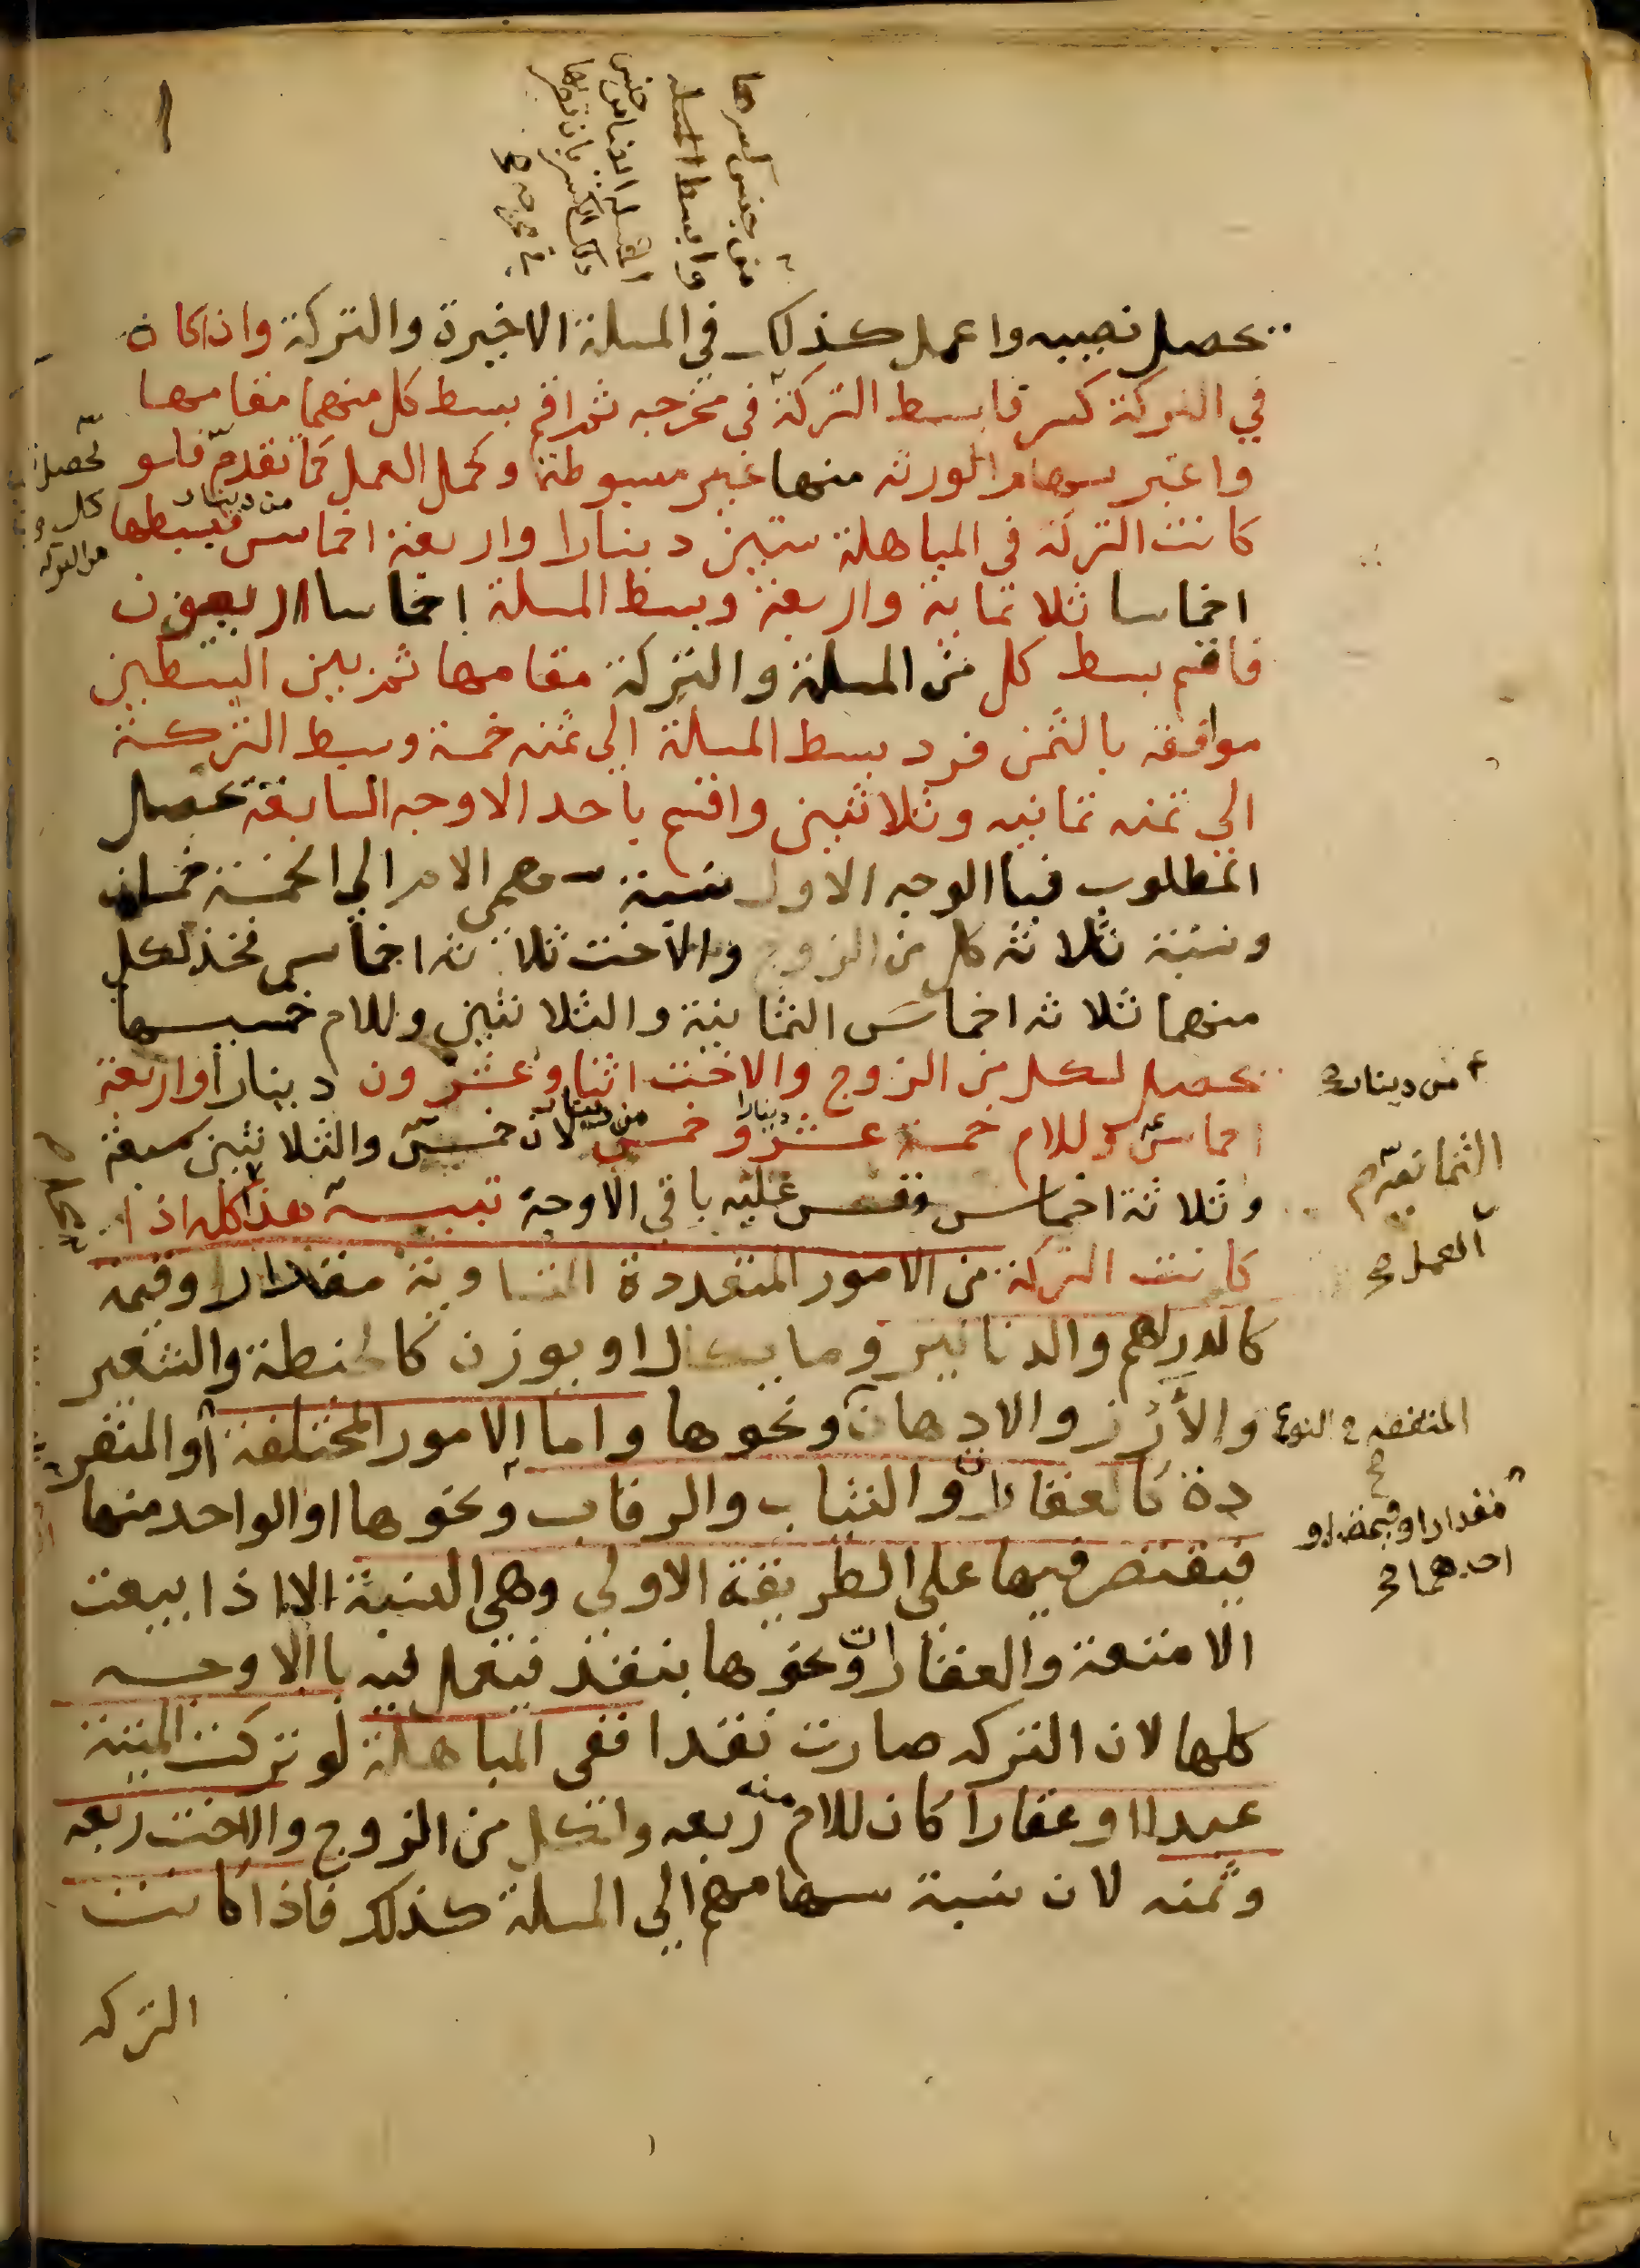 من جنس كسرها
وابسط المسلة
يحصل نصيبه واعمل كذلك في المسلة الاخيرة والتركة واذا كان
في التركة كسر فابسط التركة في مخرجه ثم اقم بسط كل منهما مقامها
واعتبر سهام الورثة منها غير مبسوطة وكمل العمل كما تقدم فلو
كانت التركة في المباهلة ستين دينارا واربعة اخماس فبسطها
من دينار
اخماسا ثلاثماية واربعة وبسط المسلة اخماسا اربعون
فاقم بسط كل من المسلة والتركة مقامها ثم بين البسطين
موافقة بالثمن فرد بسط المسلة الي ثمنه خمسة وبسط التركة
الي ثمنه ثمانيه وثلاثين واقسم باحد الاوجه السابقة يحصل
المطلوب فبالوجه الاول نسبة سهمي الام الي الخمسة خمسان
ونسبة ثلاثة كل من الزوج والاخت ثلاثة اخماس فخذ لكل
منهما ثلاثة اخماس الثمانية والثلاثين وللام خمسيها
يحصل لكل من الزوج والاخت اثنا وعشرون دينارا واربعة
اخماس وللام خمسة عشر دينارا وخمس من دينار لان خمس والثلاثين سبعة
وثلاثة اخماس وقس عليه باقي الاوجة تنبيه هذا كله اذا
كانت التركة من الامور المتعددة المتساوية مقدارا وقيمة
كالدراهم والدنانير وما يكال او يوزن كالحنطة والشعير
والأرز والادهان ونحوها واما الامور المختلفة أو المنفر
دة كالعقارات والثياب والرقاب ونحوها او الواحد منها
فيقتصر فيها على الطريقة الاولي وهي النسبة الا اذا بيعت
الامتعة والعقارات ونحوها بنقد فيعمل فيه باالاوجه
كلها لان التركه صارت نقدا ففي المباهلة لو تركت الميتة
عبدا او عقارا كان للام منه ربعه ولكل من الزوج والاخت ربعه
وثمنه لان نسبة سهامهم الي المسلة كذلك فاذا كانت
التركه
تحصل
كل
من التركه
من دينار
الثمانية
العمل
المتفقه في النوع
مقدارا او قيمة او
احدهما